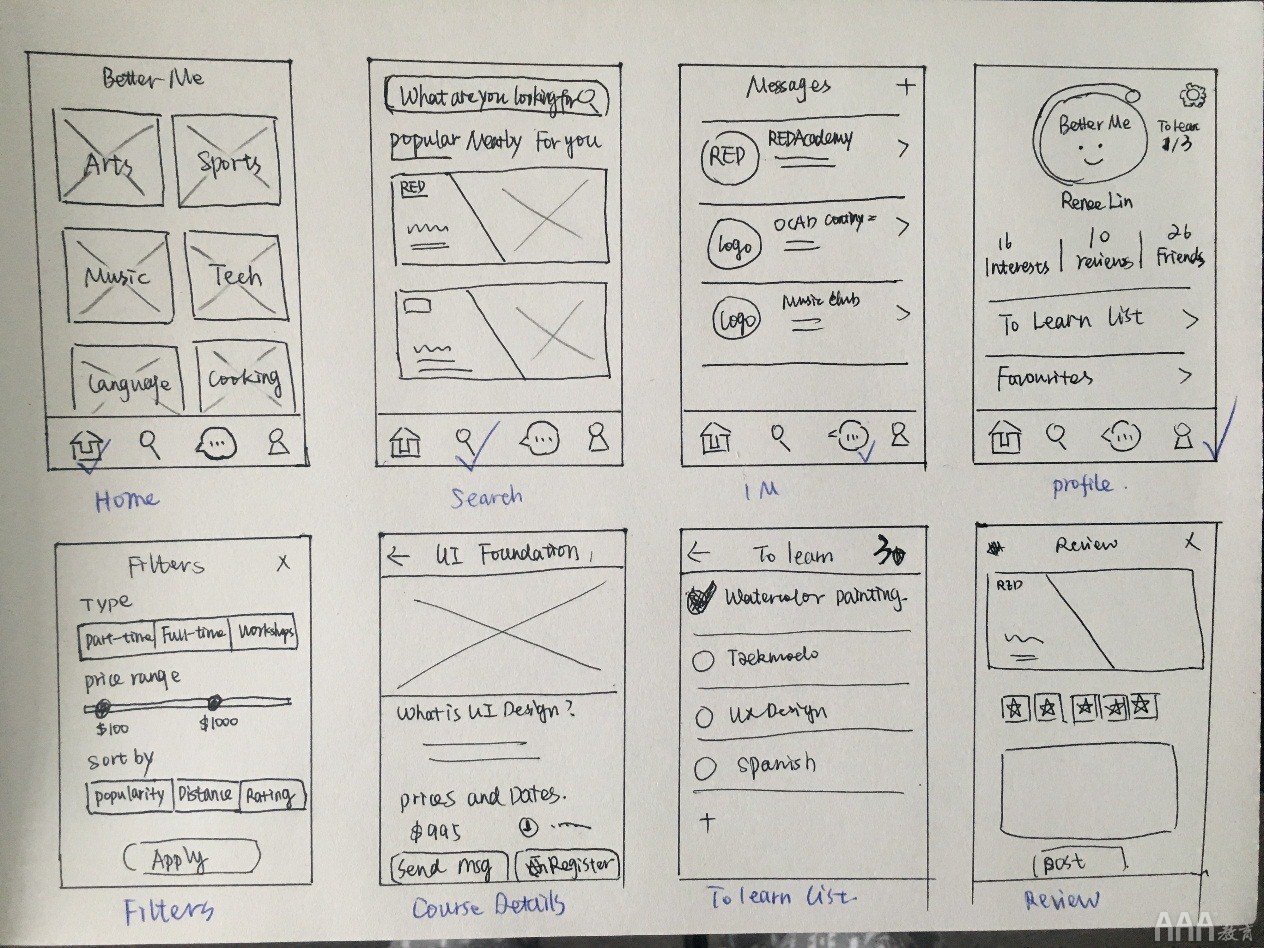 Better Me
Arts
Sports
Music
Tech
Language
Cooking
Home
What are you looking for
popular Nearby For you
RED
Search
Messages +
RED
REDAcademy
logo
OCAD
logo
Music Club
IM
Better Me
To Learn
1/3
Renee Lin
16
Interests
10
reviews
26
Friends
To Learn List
Favourites
profile.
Filters X
Type
Part-time Full-time Workshops
price range
$100 $1000
Sort by
popularity Distance Rating
Apply
Filters
UI Foundation
What is UI Design?
prices and Dates.
$995
Send msg
Register
Course Details
To learn
Watercolor painting.
Taekmodo
UX Design
Spanish
+
To learn List.
Review X
RED
post
Review
AAA教育